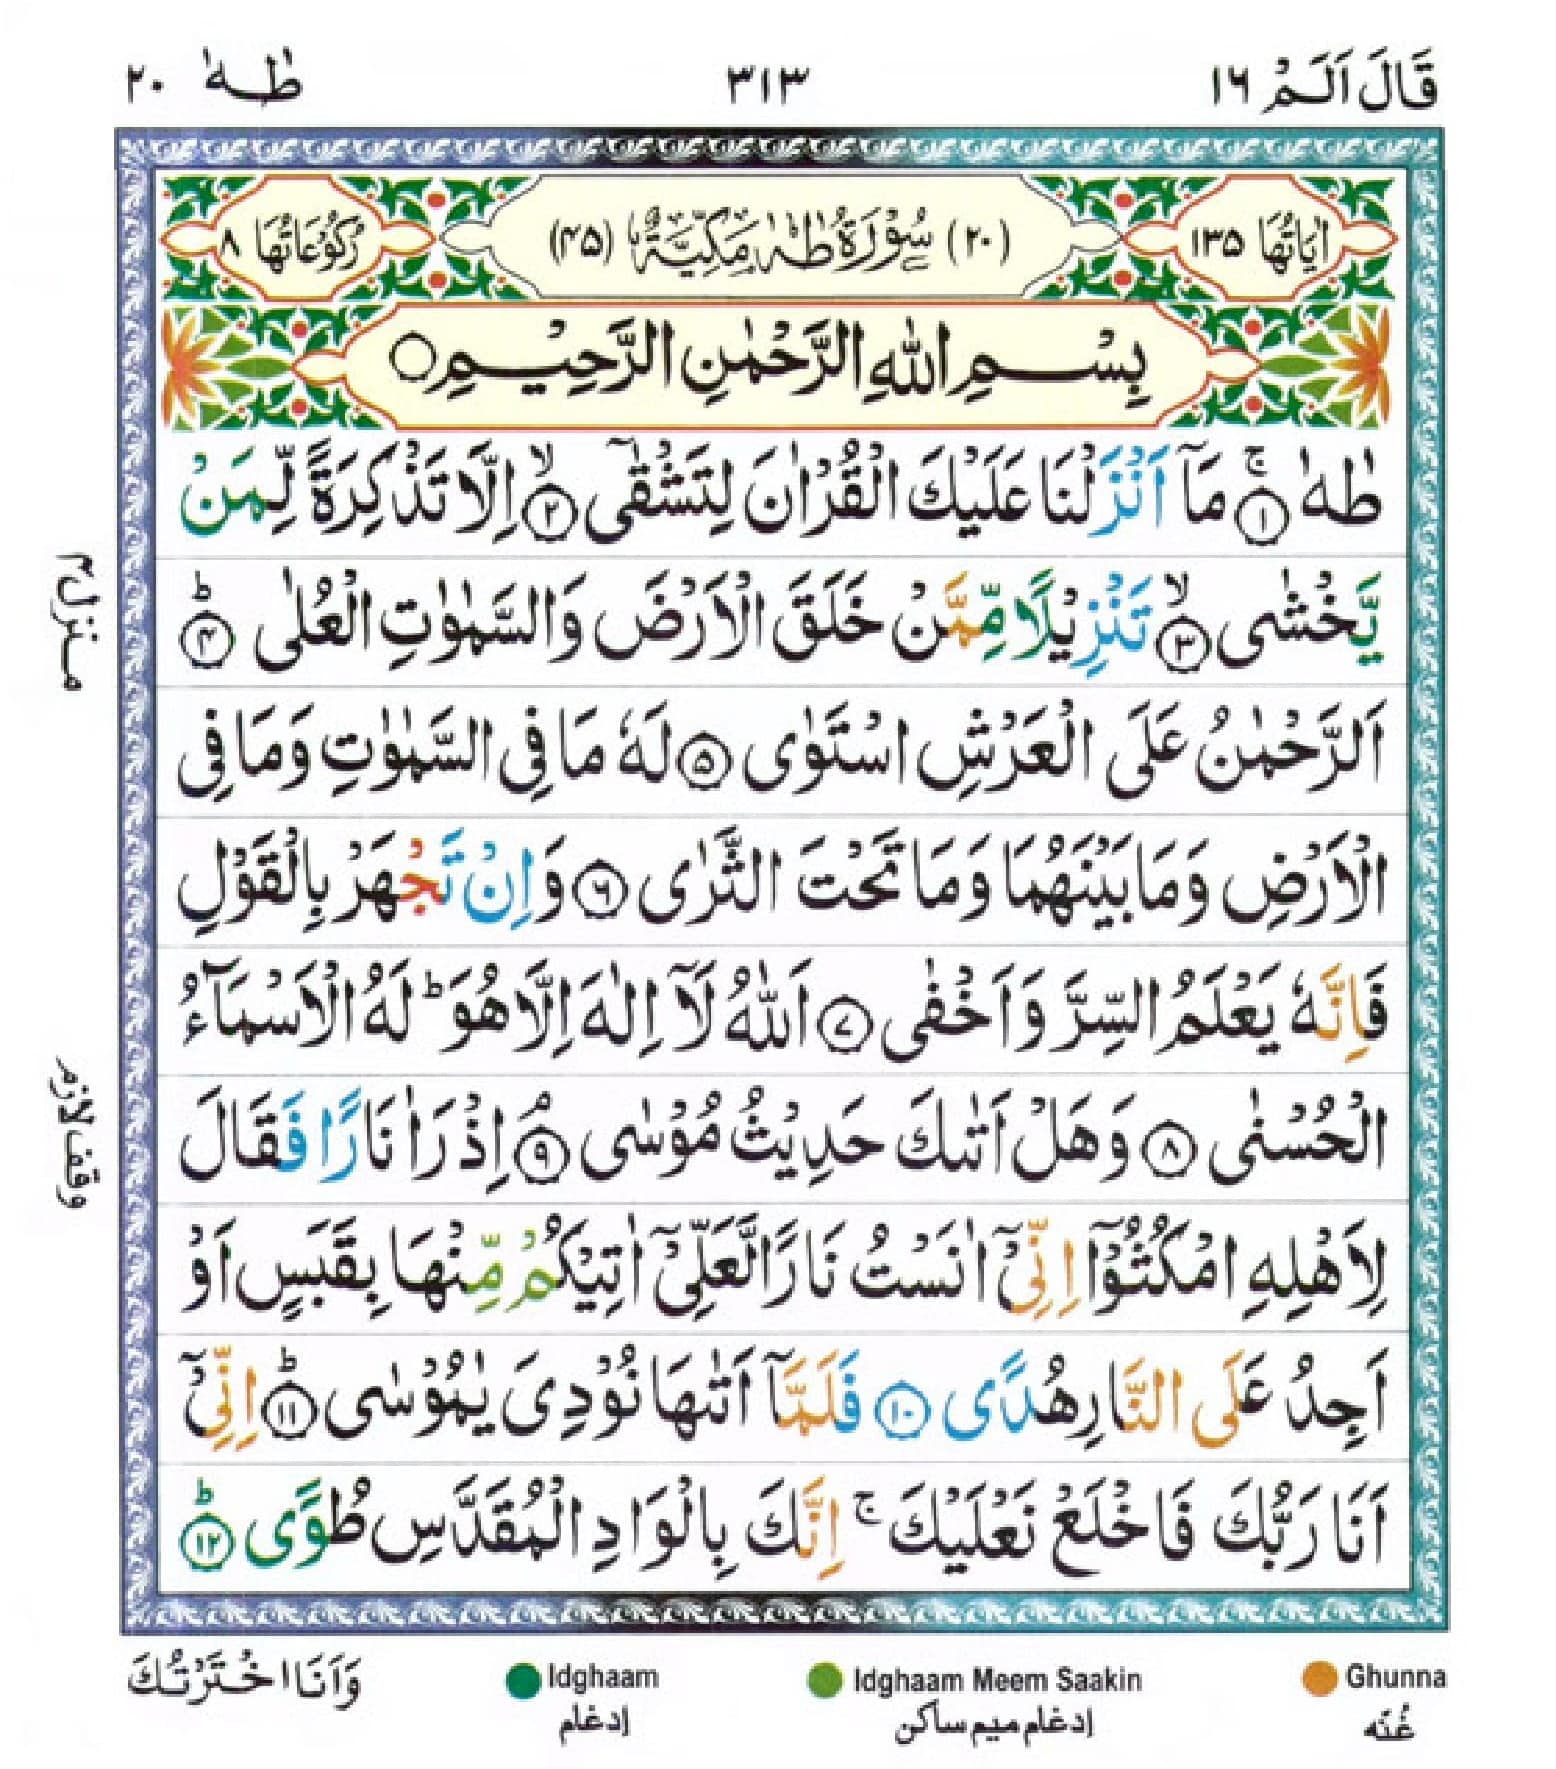 قَالَ اَلَمْ ١٦
٣١٣
طٰهٰ ٢٠
اٰيَاتُهَا ١٣٥
(٢٠) سُوْرَةُ طٰهٰ مَكِّيَّةٌ (٤٥)
رُكُوْعَاتُهَا ٨
بِسْمِ اللّٰهِ الرَّحْمٰنِ الرَّحِيْمِ ۝
طٰهٰ ۚ‏﴿١﴾ مَاۤ اَنْزَلْنَا عَلَيْكَ الْقُرْاٰنَ لِتَشْقٰٓى ۙ‏﴿٢﴾ اِلَّا تَذْكِرَةً لِّمَنْ
يَّخْشٰى ۙ‏﴿٣﴾ تَنْزِيْلًا مِّمَّنْ خَلَقَ الْاَرْضَ وَالسَّمٰوٰتِ الْعُلٰى ؕ‏﴿٤﴾
اَلرَّحْمٰنُ عَلَى الْعَرْشِ اسْتَوٰى ﴿٥﴾ لَهٗ مَا فِى السَّمٰوٰتِ وَمَا فِى
الْاَرْضِ وَمَا بَيْنَهُمَا وَمَا تَحْتَ الثَّرٰى ﴿٦﴾ وَاِنْ تَجْهَرْ بِالْقَوْلِ
فَاِنَّهٗ يَعْلَمُ السِّرَّ وَاَخْفٰى ﴿٧﴾ اَللّٰهُ لَاۤ اِلٰهَ اِلَّا هُوَ ؕ لَهُ الْاَسْمَآءُ
الْحُسْنٰى ﴿٨﴾ وَهَلْ اَتٰىكَ حَدِيْثُ مُوْسٰى ۘ‏﴿٩﴾ اِذْ رَاٰ نَارًا فَقَالَ
لِاَهْلِهِ امْكُثُوْۤا اِنِّىْۤ اٰنَسْتُ نَارًا لَّعَلِّىْۤ اٰتِيْكُمْ مِّنْهَا بِقَبَسٍ اَوْ
اَجِدُ عَلَى النَّارِ هُدًى ﴿١٠﴾ فَلَمَّاۤ اَتٰىهَا نُوْدِىَ يٰمُوْسٰى ؕ‏﴿١١﴾ اِنِّىْۤ
اَنَا رَبُّكَ فَاخْلَعْ نَعْلَيْكَ ۚ اِنَّكَ بِالْوَادِ الْمُقَدَّسِ طُوًى ؕ‏﴿١٢﴾
منزل ٤
وقف لازم
وَاَنَا اخْتَرْتُكَ
Idghaam
ادغام
Idghaam Meem Saakin
ادغام میم ساکن
Ghunna
غُنّه